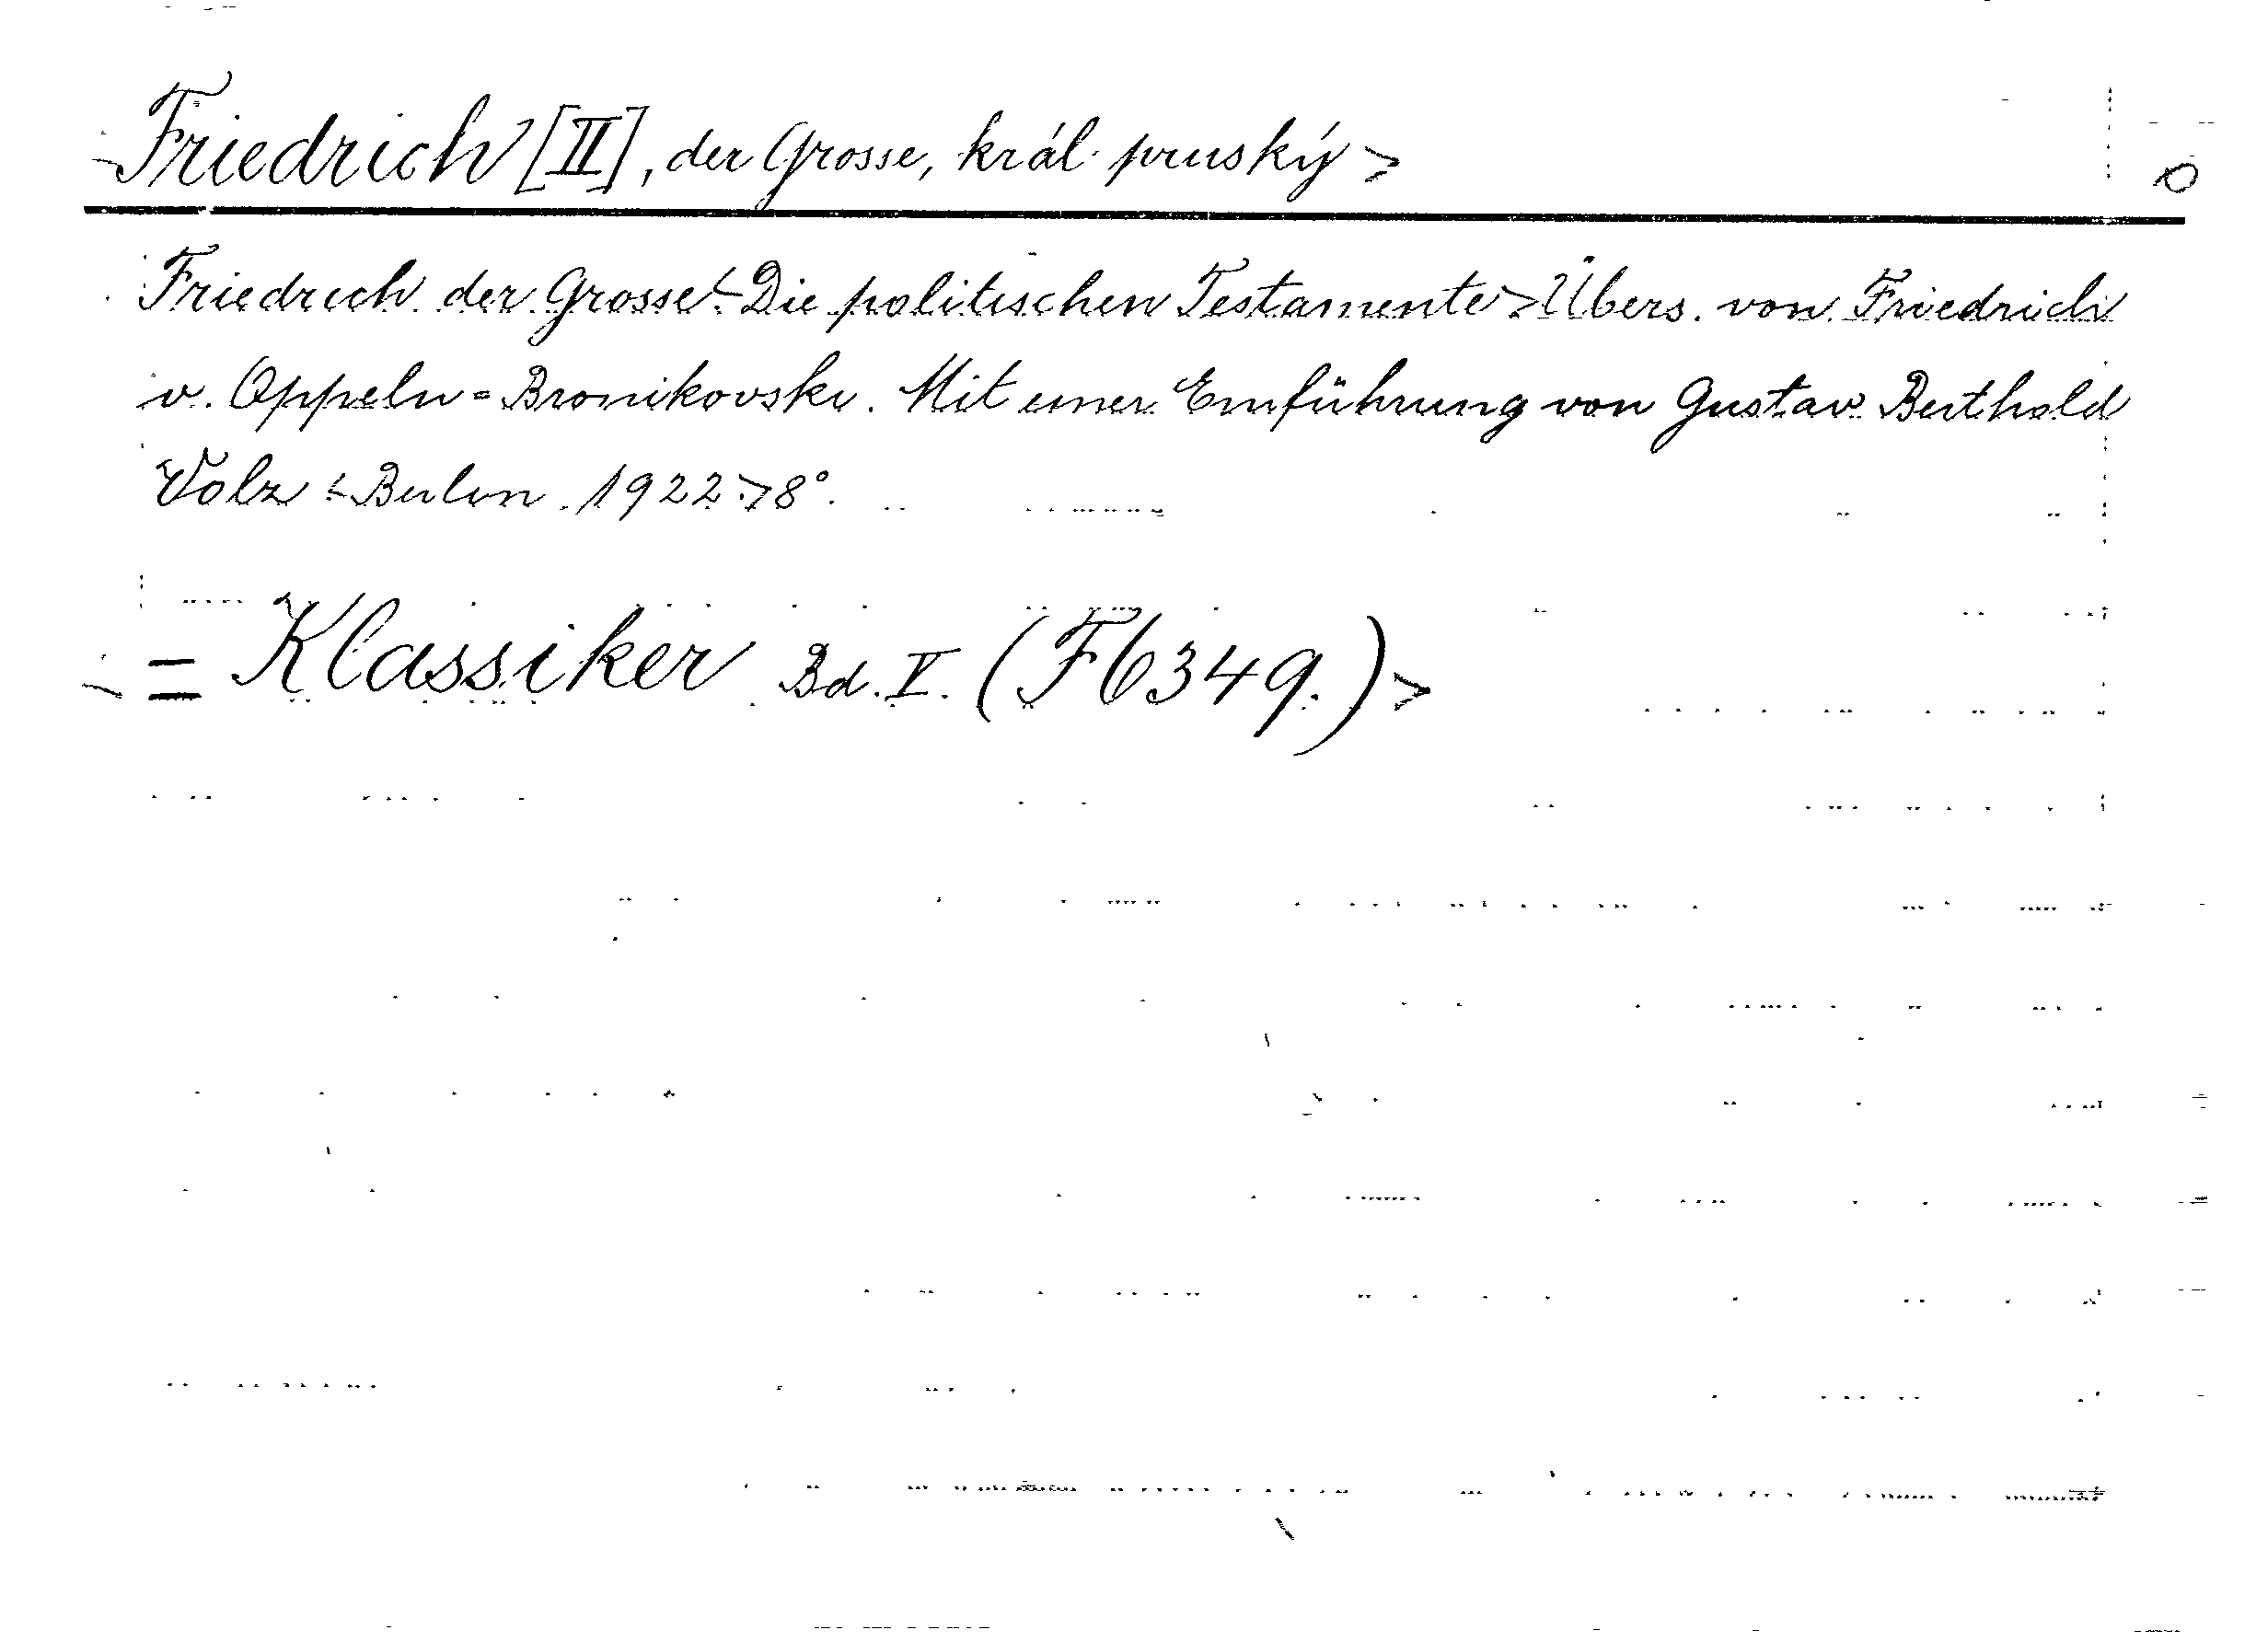 Friedrich [II], der Grosse, král pruský >
Friedrich der Grosse: < Die politischen Testamente > Übers. von Friedrich
v. Oppeln-Bronikovski. Mit einer Einführung von Gustav Berthold
Volz < Berlin 1922 > 8°.
= Klassiker Bd. V. (F6349.) >